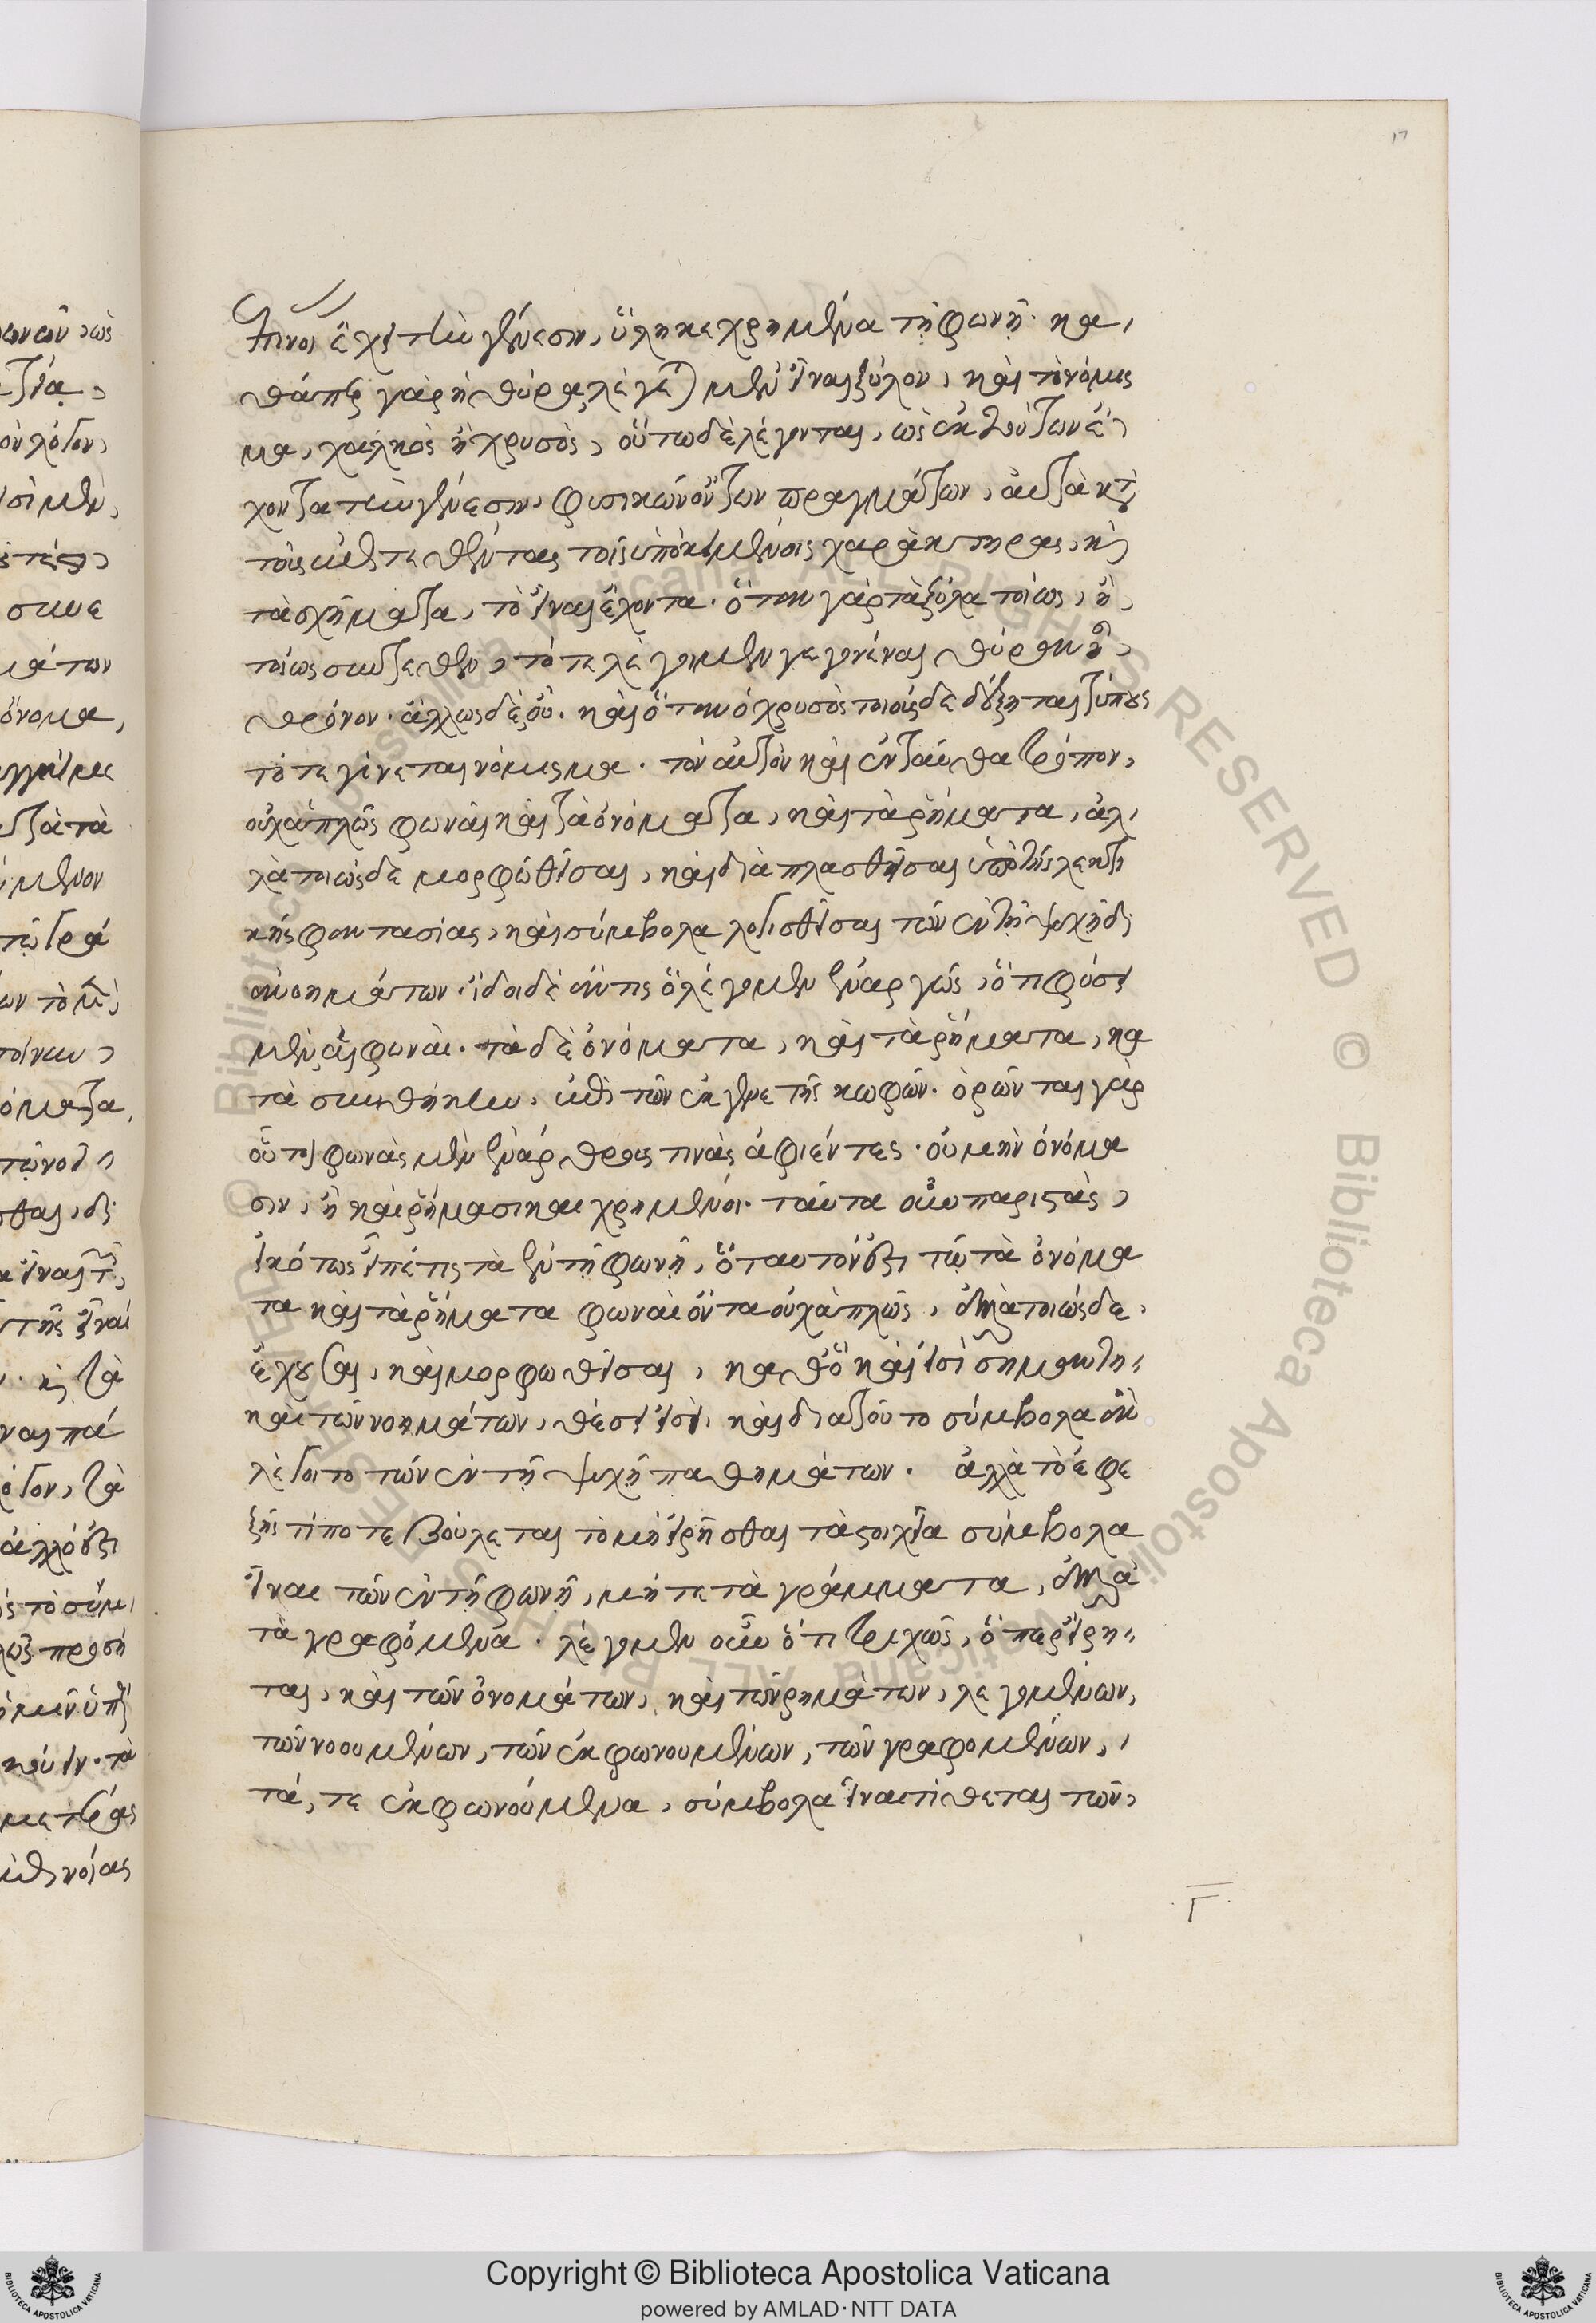 17
πίνοι ἔχει τὴν γένεσιν, ὕλη κεχρημένα τῇ φωνῇ. κα,
θάπερ γὰρ ἡ θύρα λέγεται μὲν εἶναι ξύλον, καὶ τὸ νόμις
μα, χαλκὸς ἢ χρυσὸς, οὕτω δὲ λέγονται, ὡς ἐκ τούτων ἔ,
χοντα τὴν γένεσιν, φυσικῶν ὄντων πραγμάτων, αὐτὰ κατὰ
τοὺς ἐπιτεθέντας τοῖς ὑποκειμένοις χαρακτηρας, καὶ
τὰ σχήματα, τὸ εἶναι ἔχοντα. ὅταν γὰρ τὰ ξύλα τοίως, ἢ,
τοίως συντεθῇ, τότε λέγομεν γεγονέναι θύραν ἢ,
θρόνον. ἄλλως δὲ οὔ. καὶ ὅταν ὁ χρυσὸς τοιούσδε δέξηται τύπους
τότε γίνεται νόμισμα. τὸν αὐτὸν καὶ ἐνταῦθα τρόπον,
οὐχ ἁπλῶς φωναὶ καὶ τὰ ὀνόματα, καὶ τὰ ῥήματα, ἀλ,
λὰ τοιῶσδε μορφωθεῖσαι, καὶ διαπλασθεῖσαι ὑπὸ τῆς λεκτι
κῆς φαντασίας, καὶ σύμβολα λογισθεῖσαι τῶν ἐν τῇ ψυχῇ δι
ανοημάτων. ἴδοι δὲ ἄν τις ὃ λέγομεν ἐναργῶς, ὅτι φύσει
μὲν αἱ φωναὶ. τὰ δὲ ὀνόματα, καὶ τὰ ῥήματα, κα
τὰ συνθήκην, ἐπὶ τῶν ἐκ γενετῆς κωφῶν. ὁρῶνται γὰρ
οὗτοι φωνὰς μὲν ἐνάρθρους τινὰς ἀφιέντες. οὐ μὴν ὀνόμα
σιν, ἢ καὶ ῥήμασι καὶ χρημένοι. ταῦτα οὖν παριστὰς,
εἰκότως εἶπέ τις τὰ ἐν τῇ φωνῇ, ὅταυτόν ἐστι τῷ τὰ ὀνόμα
τα καὶ τὰ ῥήματα φωναὶ ὄντα οὐχ ἁπλῶς, ἀλλὰ τοιῶσδε,
ἔχουσαι, καὶ μορφωθεῖσαι, καθὸ καὶ εἰσὶ σημαντι
καὶ τῶν νοημάτων, θέσει εἰσὶ, καὶ διὰ τοῦτο σύμβολα ἂν
λέγοιτο τῶν ἐν τῇ ψυχῇ παθημάτων. ἀλλὰ τὸ ἐφε
ξῆς τί ποτε βούλεται τὸ μὴ εἰρῆσθαι τὰ στοιχεῖα σύμβολα
εἶναι τῶν ἐν τῇ φωνῇ, μήτε τὰ γράμματα, ἀλλὰ
τὰ γραφόμενα. λέγομεν οὖν ὅτι τριχῶς, ὅπερ εἴρη
ται, καὶ τῶν ὀνομάτων, καὶ τῶν ῥημάτων, λεγομένων,
τῶν νοουμένων, τῶν ἐκφωνουμένων, τῶν γραφομένων,
τά, τε ἐκφωνούμενα, σύμβολα εἶναι τίθεται τῶν,
Γ
Copyright © Biblioteca Apostolica Vaticana
powered by AMLAD·NTT DATA